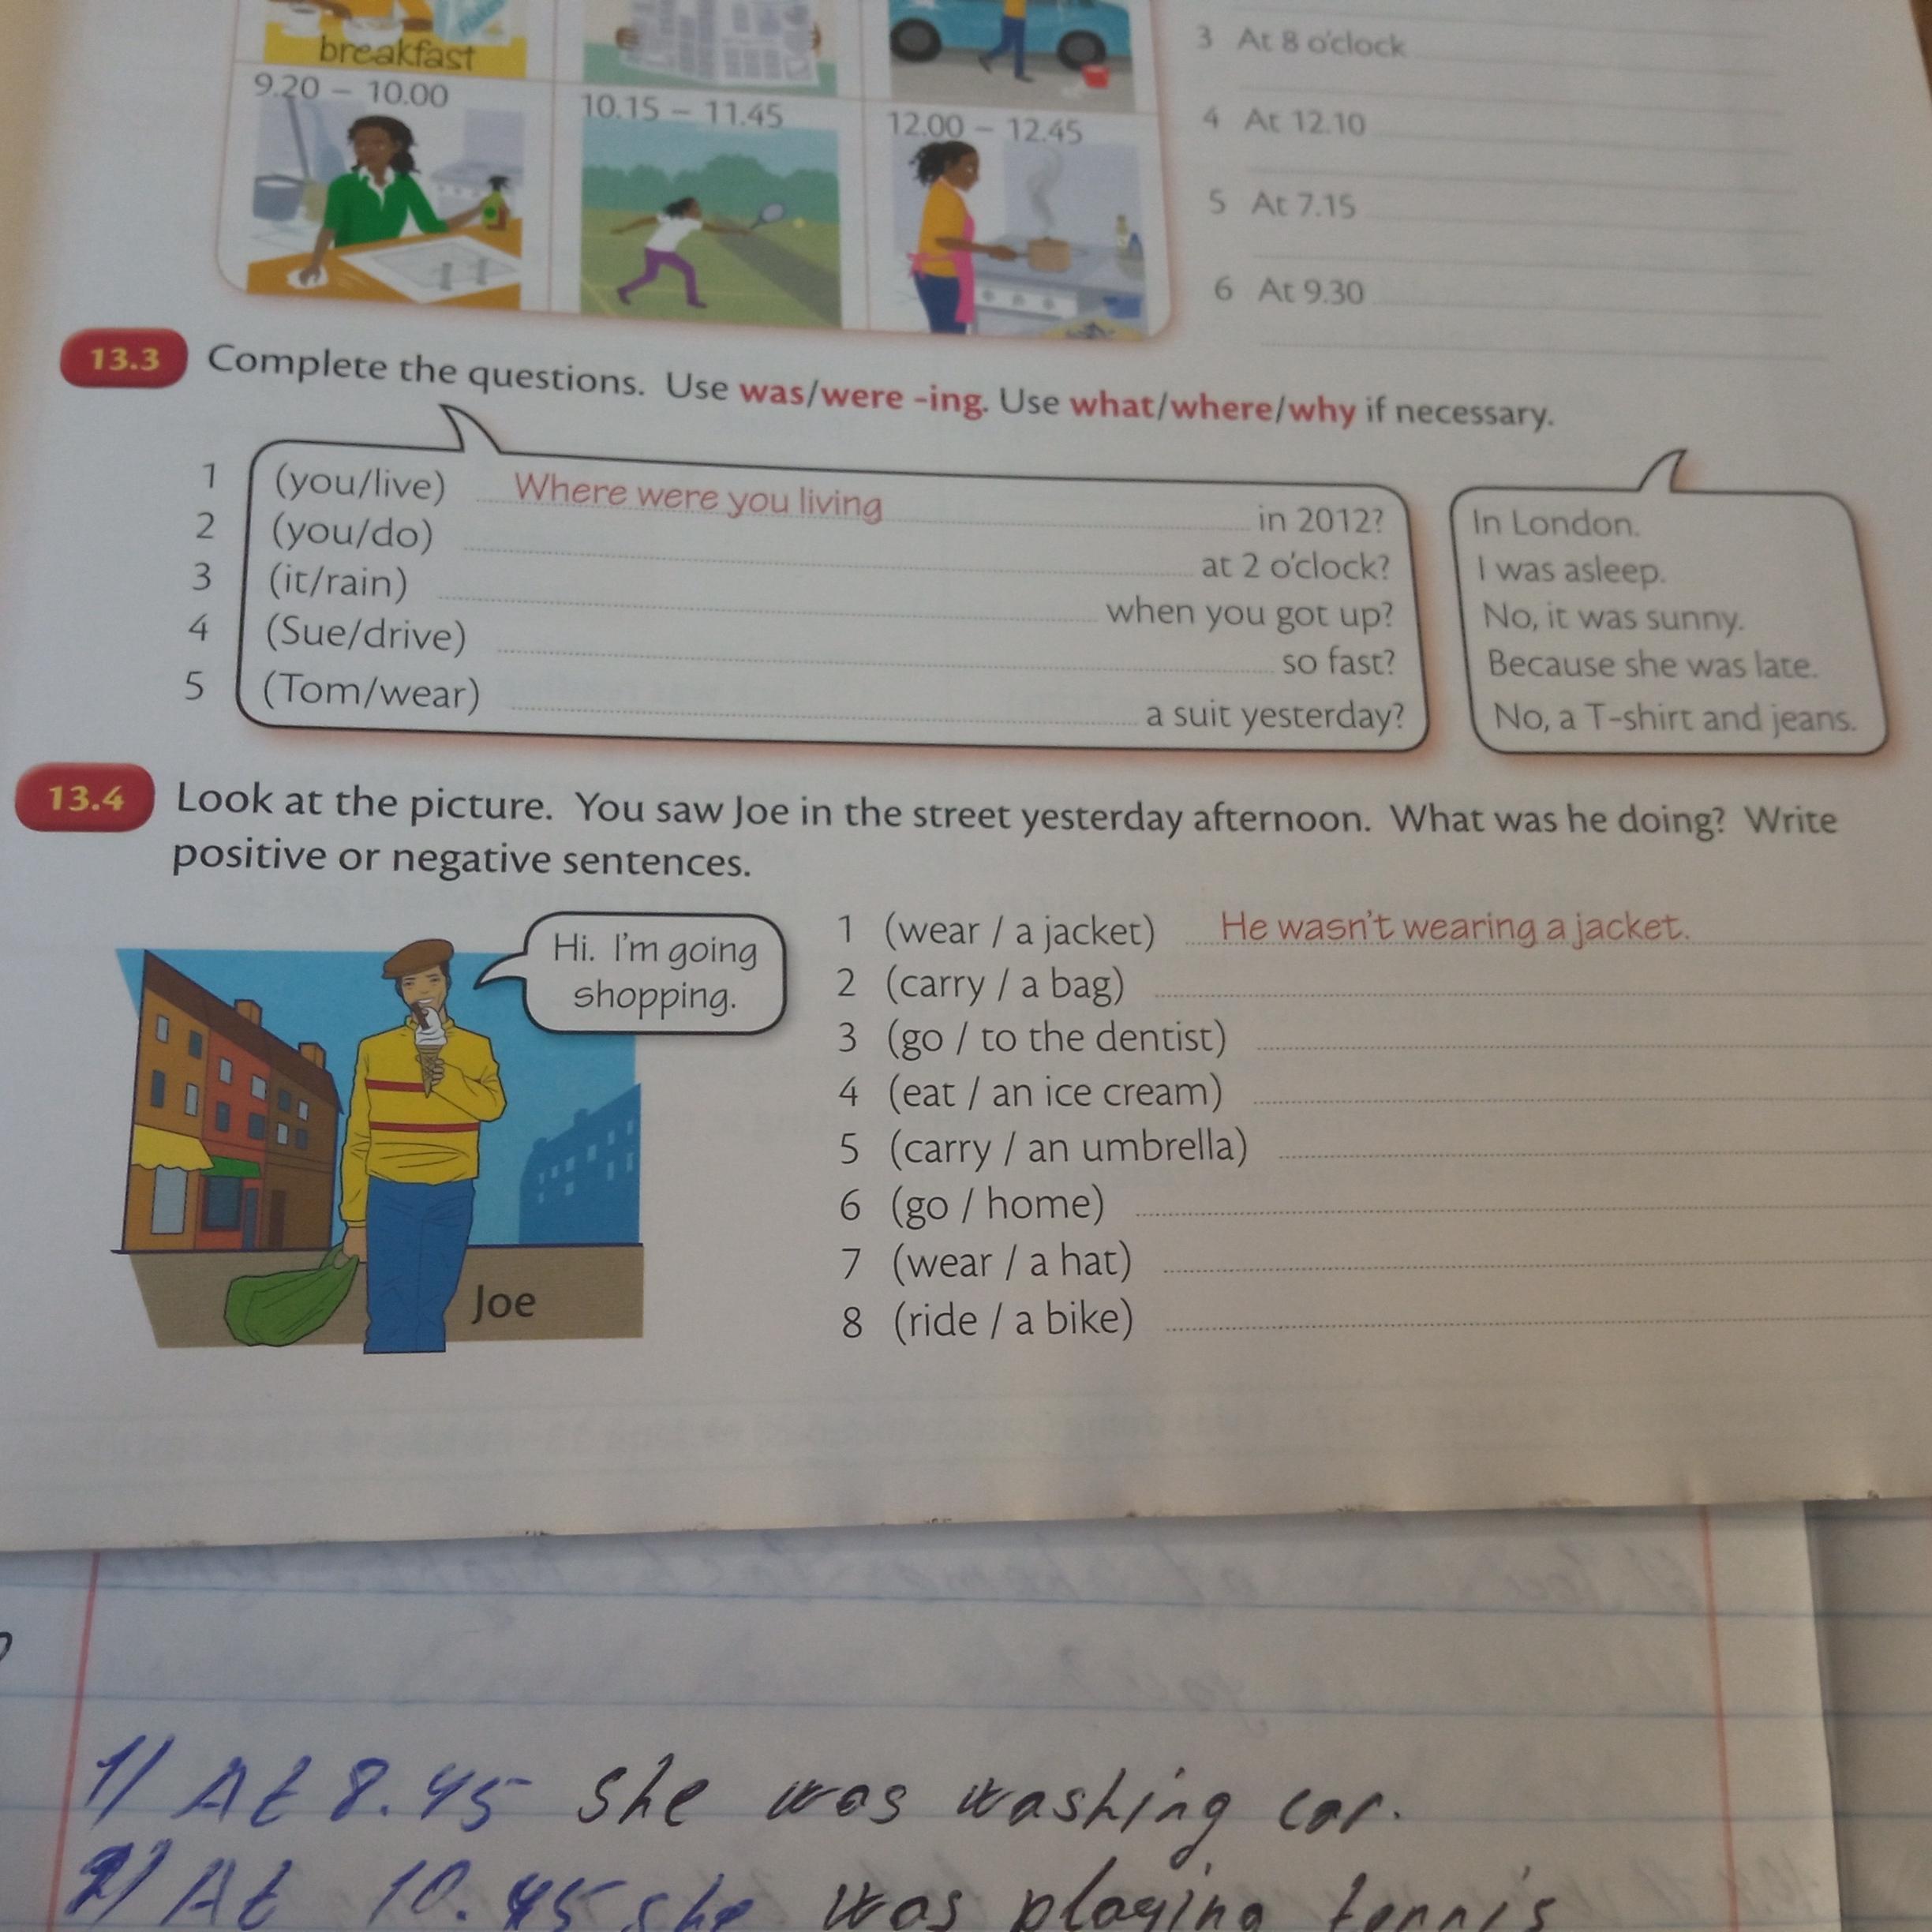 breakfast
3 At 8 o'clock
9.20 – 10.00
10.15 – 11.45
12.00 – 12.45
4 At 12.10
5 At 7.15
6 At 9.30
13.3 Complete the questions. Use was/were -ing. Use what/where/why if necessary.
1 (you/live) Where were you living in 2012? In London.
2 (you/do) at 2 o'clock? I was asleep.
3 (it/rain) when you got up? No, it was sunny.
4 (Sue/drive) so fast? Because she was late.
5 (Tom/wear) a suit yesterday? No, a T-shirt and jeans.
13.4 Look at the picture. You saw Joe in the street yesterday afternoon. What was he doing? Write
positive or negative sentences.
Hi. I'm going
shopping.
Joe
1 (wear / a jacket) He wasn't wearing a jacket.
2 (carry / a bag)
3 (go / to the dentist)
4 (eat / an ice cream)
5 (carry / an umbrella)
6 (go / home)
7 (wear / a hat)
8 (ride / a bike)
1) At 8.45 she was washing car.
2) At 10.45 she was playing tennis